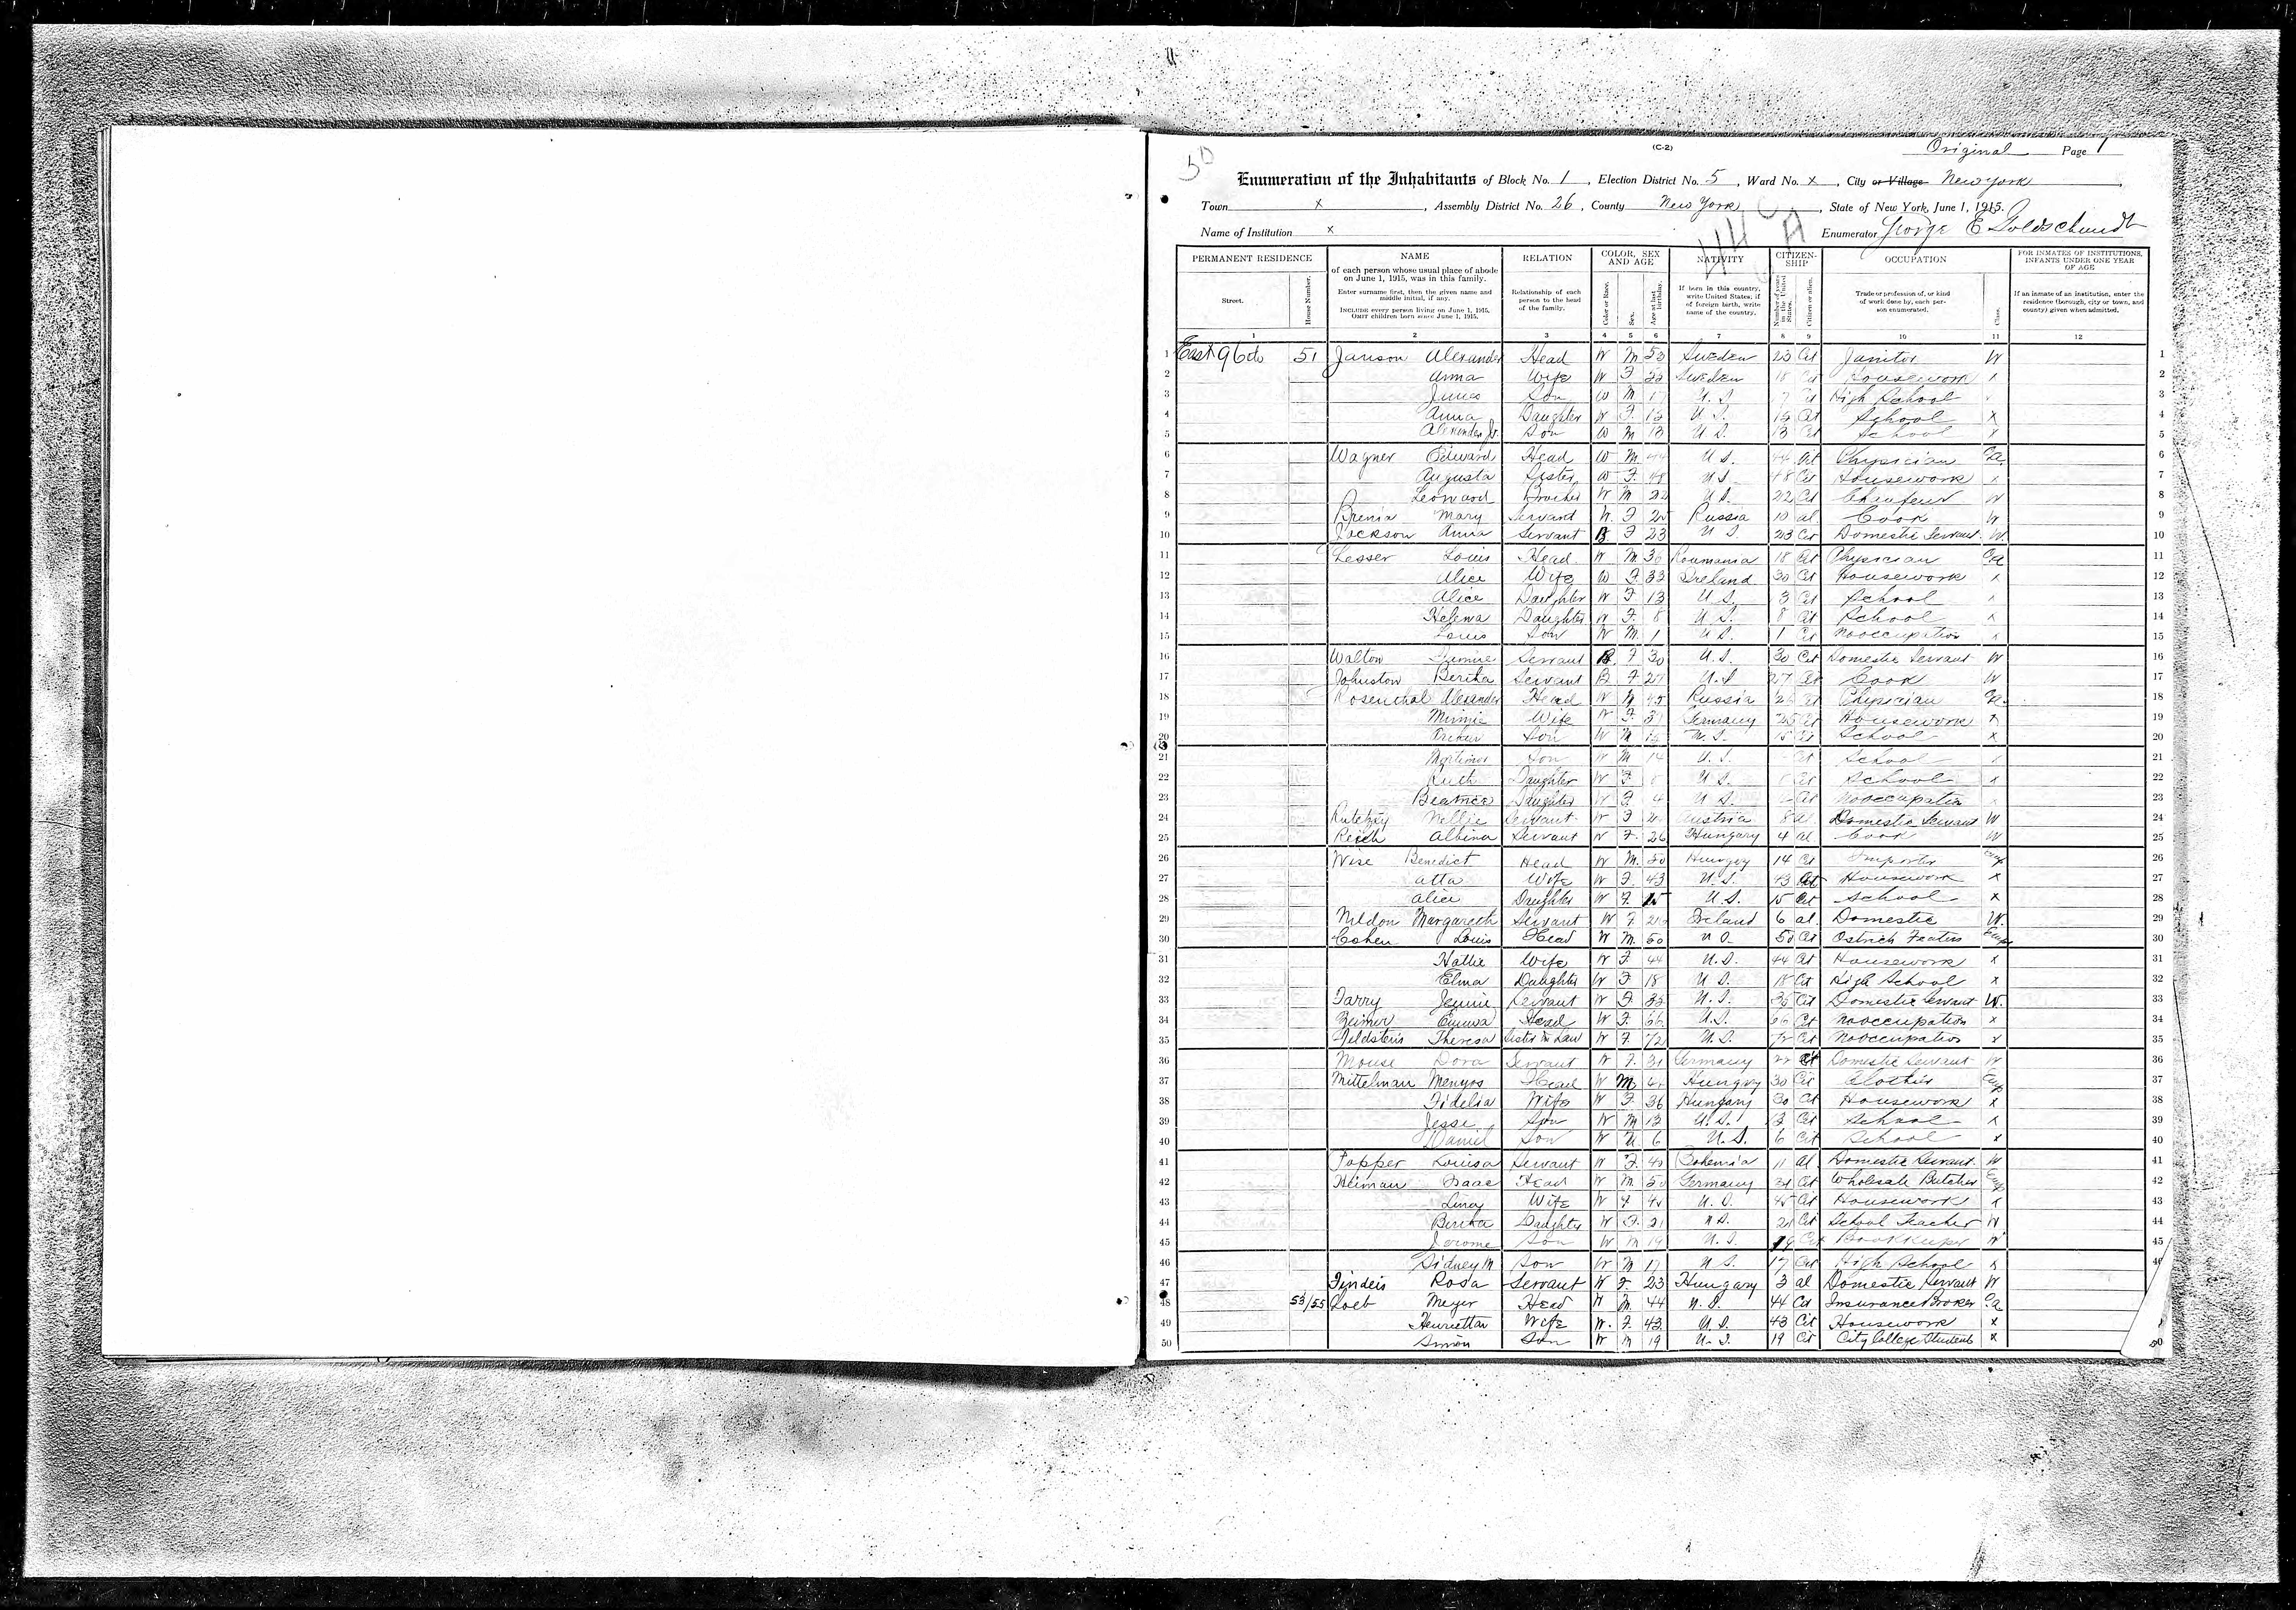 50
(C-2)
Original Page 1
Enumeration of the Inhabitants of Block No. 1, Election District No. 5, Ward No. x, City or Village New York
Town x, Assembly District No. 26, County New York, State of New York, June 1, 1915.
Name of Institution x Enumerator George E Goldschmidt
44 A
PERMANENT RESIDENCE NAME RELATION COLOR, SEX AND AGE NATIVITY CITIZEN-SHIP OCCUPATION FOR INMATES OF INSTITUTIONS, INFANTS UNDER ONE YEAR OF AGE
Street. House Number. of each person whose usual place of abode on June 1, 1915, was in this family. Enter surname first, then the given name and middle initial, if any. INCLUDE every person living on June 1, 1915. OMIT children born since June 1, 1915. Relationship of each person to the head of the family. Color or Race. Sex. Age at last birthday. If born in this country, write United States; if of foreign birth, write name of the country. Number of years in the United States. Citizen or alien. Trade or profession of, or kind of work done by, each person enumerated. Class. If an inmate of an institution, enter the residence (borough, city or town, and county) given when admitted.
1 2 3 4 5 6 7 8 9 10 11 12
1 East 96th 51 Janson Alexander Head W M 53 Sweden 23 Cit Janitor W 1
2 Anna Wife W F Sweden 18 Cit Housework x 2
3 Son W M 17 U.S. 17 Cit High School 3
4 Anna Daughter W F 15 U.S. 15 Cit School x 4
5 Alexander Jr. Son W M 13 U.S. 13 Cit School x 5
6 Wagner Edward Head W M 44 U.S. 44 Cit Physician 6
7 Augusta Sister W F 48 U.S. 48 Cit Housework x 7
8 Leonard Brother W M 22 U.S. 22 Cit Chaufeur W 8
9 Mary Servant W F Russia 10 al Cook W 9
10 Jackson Anna Servant B F 23 U.S. 23 Cit Domestic Servant W 10
11 Lesser Louis Head W M 36 Roumania 18 Cit Physician 11
12 Alice Wife W F 33 Ireland 30 Cit Housework x 12
13 Alice Daughter W F 13 U.S. 3 Cit School x 13
14 Helena Daughter W F 8 U.S. 8 Cit School x 14
15 Louis Son W M 1 U.S. 1 Cit No occupation x 15
16 Walton Servant B F 30 U.S. 30 Cit Domestic Servant W 16
17 Johnston Bertha Servant B F 27 U.S. 27 Cit Cook W 17
18 Rosenthal Alexander Head W M 45 Russia Cit Physician 18
19 Minnie Wife W F Germany 25 Cit Housework x 19
20 Son W M 15 U.S. 15 Cit School x 20
21 Mortimer Son W M 14 U.S. Cit School x 21
22 Ruth Daughter W F 8 U.S. 8 Cit School x 22
23 Beatrice Daughter W F 4 U.S. Cit No occupation 23
24 Nellie Servant W F Austria 8 al Domestic Servant W 24
25 Reich Albina Servant W F 26 Hungary 4 al Cook W 25
26 Wise Benedict Head W M. 50 14 Cit Importer Emp 26
27 Etta Wife W F 43 U.S. 43 Cit Housework x 27
28 Alice Daughter W F 15 U.S. 15 Cit School x 28
29 Margareth Servant W F Ireland 6 al Domestic W. 29
30 Cohen Louis Head W M. 50 U.S. 50 Cit Ostrich Emp 30
31 Hattie Wife W F 44 U.S. 44 Cit Housework x 31
32 Elma Daughter W F 18 U.S. 18 Cit High School x 32
33 Jennie Servant W F 35 U.S. 35 Cit Domestic Servant W. 33
34 Zeimer Emma Head W F 66 U.S. 66 Cit No occupation x 34
35 Theresa Sister in Law W F 72 U.S. 72 Cit No occupation x 35
36 Mouse Dora Servant W F 31 Germany Cit Domestic Servant W 36
37 Mittelman Head W M 30 Cit Clothier Emp 37
38 Fidelia Wife W F 36 Hungary 30 Cit Housework x 38
39 Jesse Son W M 13 U.S. Cit School x 39
40 Daniel Son W M 6 U.S. 6 Cit School x 40
41 Popper Louisa Servant W F 40 Bohemia 11 al Domestic Servant W 41
42 Heiman Isaac Head W M 50 Germany Cit Wholesale Butcher Emp 42
43 Wife W F 45 U.S. 45 Cit Housework x 43
44 Bertha Daughter W F 21 U.S. 21 Cit School Teacher W 44
45 Jerome Son W M 19 U.S. 19 Cit Bookkeeper W 45
46 Sidney M Son W M 17 U.S. 17 Cit High School x 46
47 Findeis Rosa Servant W F 23 Hungary 3 al Domestic Servant W
48 53/55 Loeb Meyer Head W M. 44 U.S. 44 Cit Insurance Broker
49 Henrietta Wife W. F 43 U.S. 43 Cit Housework x
50 Simon Son W M 19 U.S. 19 Cit City College Student x 50